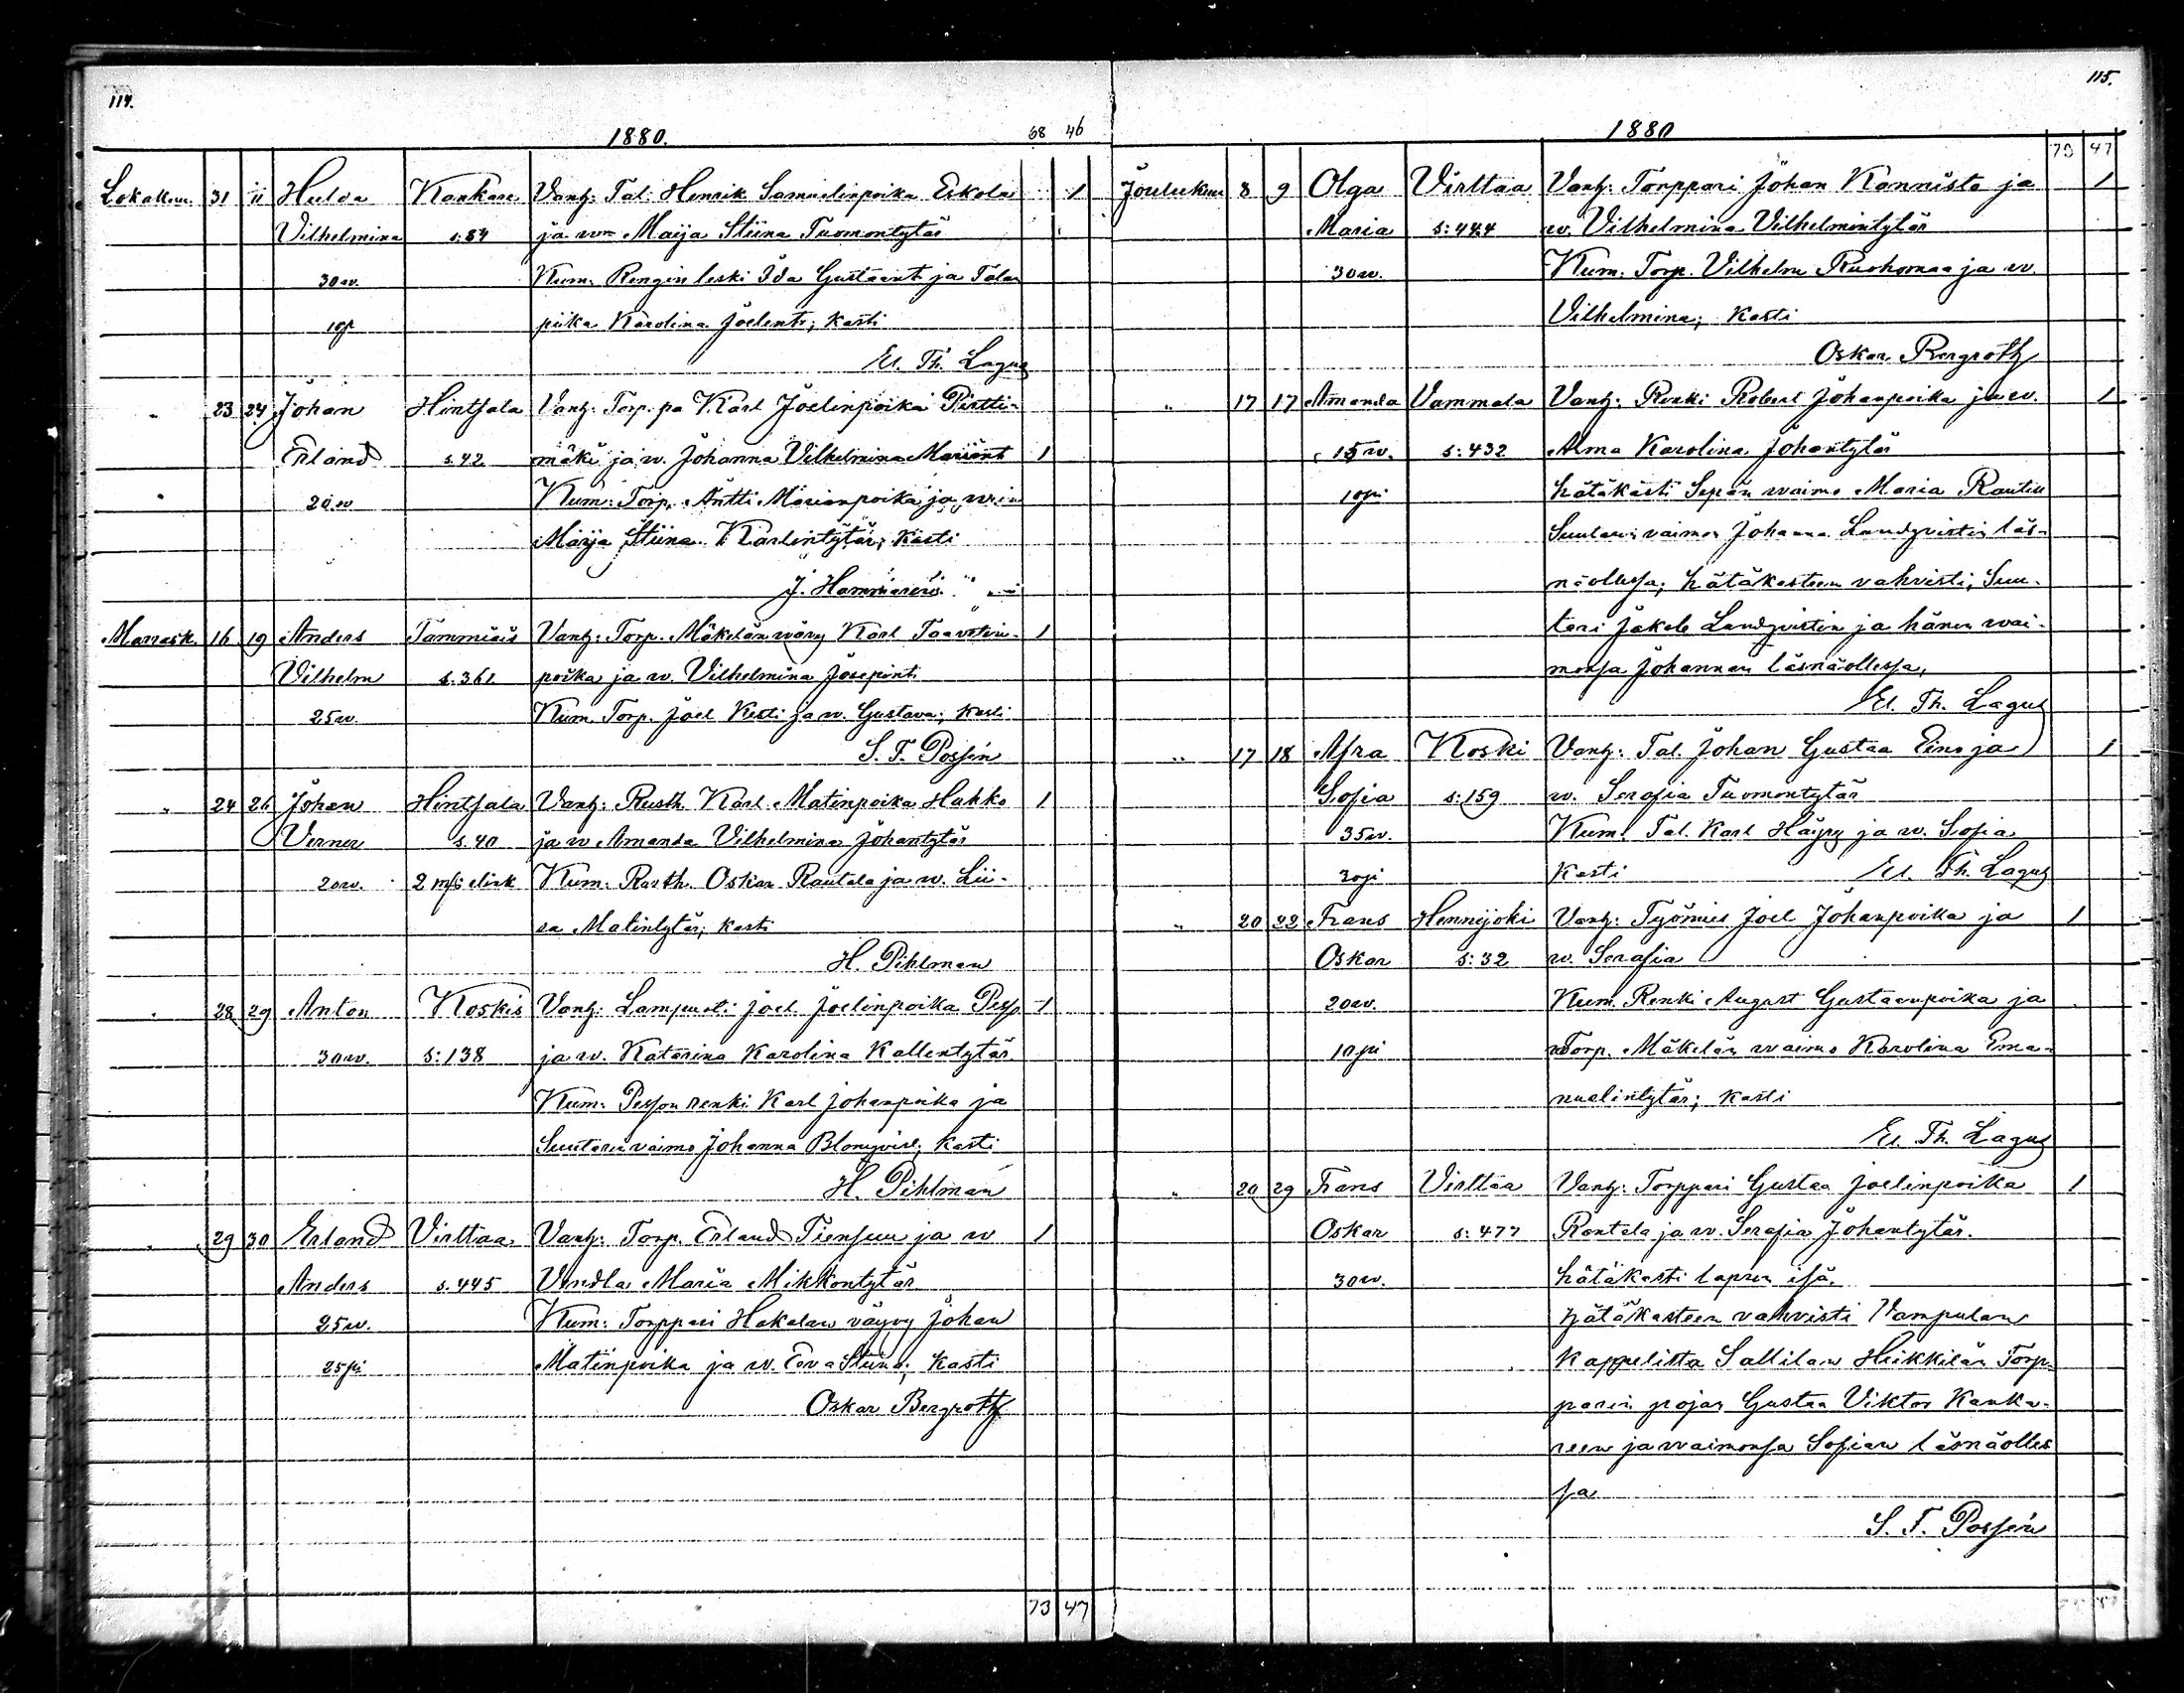 114.
1880.
68 46
Lokakuu. 31 11 Hulda Kankare Vanh: Tal: Henrik Samuelinpoika Erkola 1
Vilhelmina s: 84 ja wm Maija Stiina Tuomontytär
30 w. Kum: Rengin leski Ida Gustaant. ja Talon
10 p piika Karolina Joelent.; kasti
El. Th. Lagus
" 23 24 Johan Hintsala Vanh: Torp. pa Karl Joelinpoika Pirtti-
Erland s. 42 mäki ja w. Johanna Vilhelmina Mariant 1
20 w Kum: Torp. Antti Marianpoika ja
Maija Stiina Karlintytär; kasti
J. Hammarén
Marrask. 16 19 Anders Tammiais Vanh: Torp. Mäkelän wäwy Karl Taavetin- 1
Vilhelm s. 361 poika ja w. Vilhelmina Josepint
25 w. Kum. Torp. Joel Kesti ja w. Gustava; kasti
S. F. Possén
" 24 26 Johan Hintsala Vanh: Rusth. Karl Matinpoika Hahko 1
Verner s. 40 ja w Amanda Vilhelmina Johantytär
20 w. Kum: Rusth. Oskar Rautala ja w. Lii-
sa Matintytär; kasti
H. Pihlman
" 28 29 Anton Koskis Vanh: Lampuoti Joel Joelinpoika 1
30 w. s: 138 ja w. Katarina Karolina Kallentytär
Kum: renki Karl Johanpoika ja
Suutarin vaimo Johanna Blomqvist; kasti
H. Pihlman
" 29 30 Erland Virttaa Vanh: Torp. Erland Tiensuu ja w 1
Anders s. 445 Vendla Maria Mikkontytär
25 w. Kum: Torppari Hakalan väyvy Johan
25 pi Matinpoika ja w. Eva Stiina; kasti
Oskar Bergroth
73 47
115.
1880
73 47
Joulukuu 8 9 Olga Virttaa Vanh: Torppari Johan Kannisto ja 1
Maria s: 444 w. Vilhelmina Vilhelmintytär
30 w. Kum: Torp. Vilhelm Ruohomaa ja w.
Vilhelmina; kasti
Oskar Bergroth
" 17 17 Amanda Vammala Vanh: Renki Robert Johanpoika ja w. 1
15 w. s: 432 Alma Karolina Johantytär
10 pi hätäkasti Sepän waimo Maria
Suutarin vaimon Johanna Landqvistin läs-
näollessa; hätäkasteen vahvisti, Suu-
tari Jakob Landqvistin ja hänen wai-
monsa Johannan läsnäollessa,
El. Th. Lagus
" 17 18 Afra Koski Vanh: Tal. Johan Gustaa Eino ja 1
Sofia s: 159 w. Serafia Tuomontytär
35 w. Kum. Tal. Karl Häyry ja w. Sofia
30 pi Kasti El. Th. Lagus
" 20 22 Frans Hennijoki Vanh: Työmies Joel Johanpoika ja 1
Oskar s: 32 w. Serafia
20 w. Kum. Renki August Gustaanpoika ja
10 pi Torp. Mäkelän waimo Karolina Ema-
nuelintytär; kasti
El. Th. Lagus
" 20 29 Frans Virttaa Vanh: Torppari Gustaa Joelinpoika 1
Oskar s: 477 Rantala ja w. Serafia Johantytär.
30 w. hätäkasti lapsen isä.
hätäkasteen vahvisti Vampulan
kappelista Sallilan Heikkilän Torp-
parin pojan Gustaa Viktor Kanka-
reen ja waimonsa Sofian läsnäolles
sa
S. F. Possén